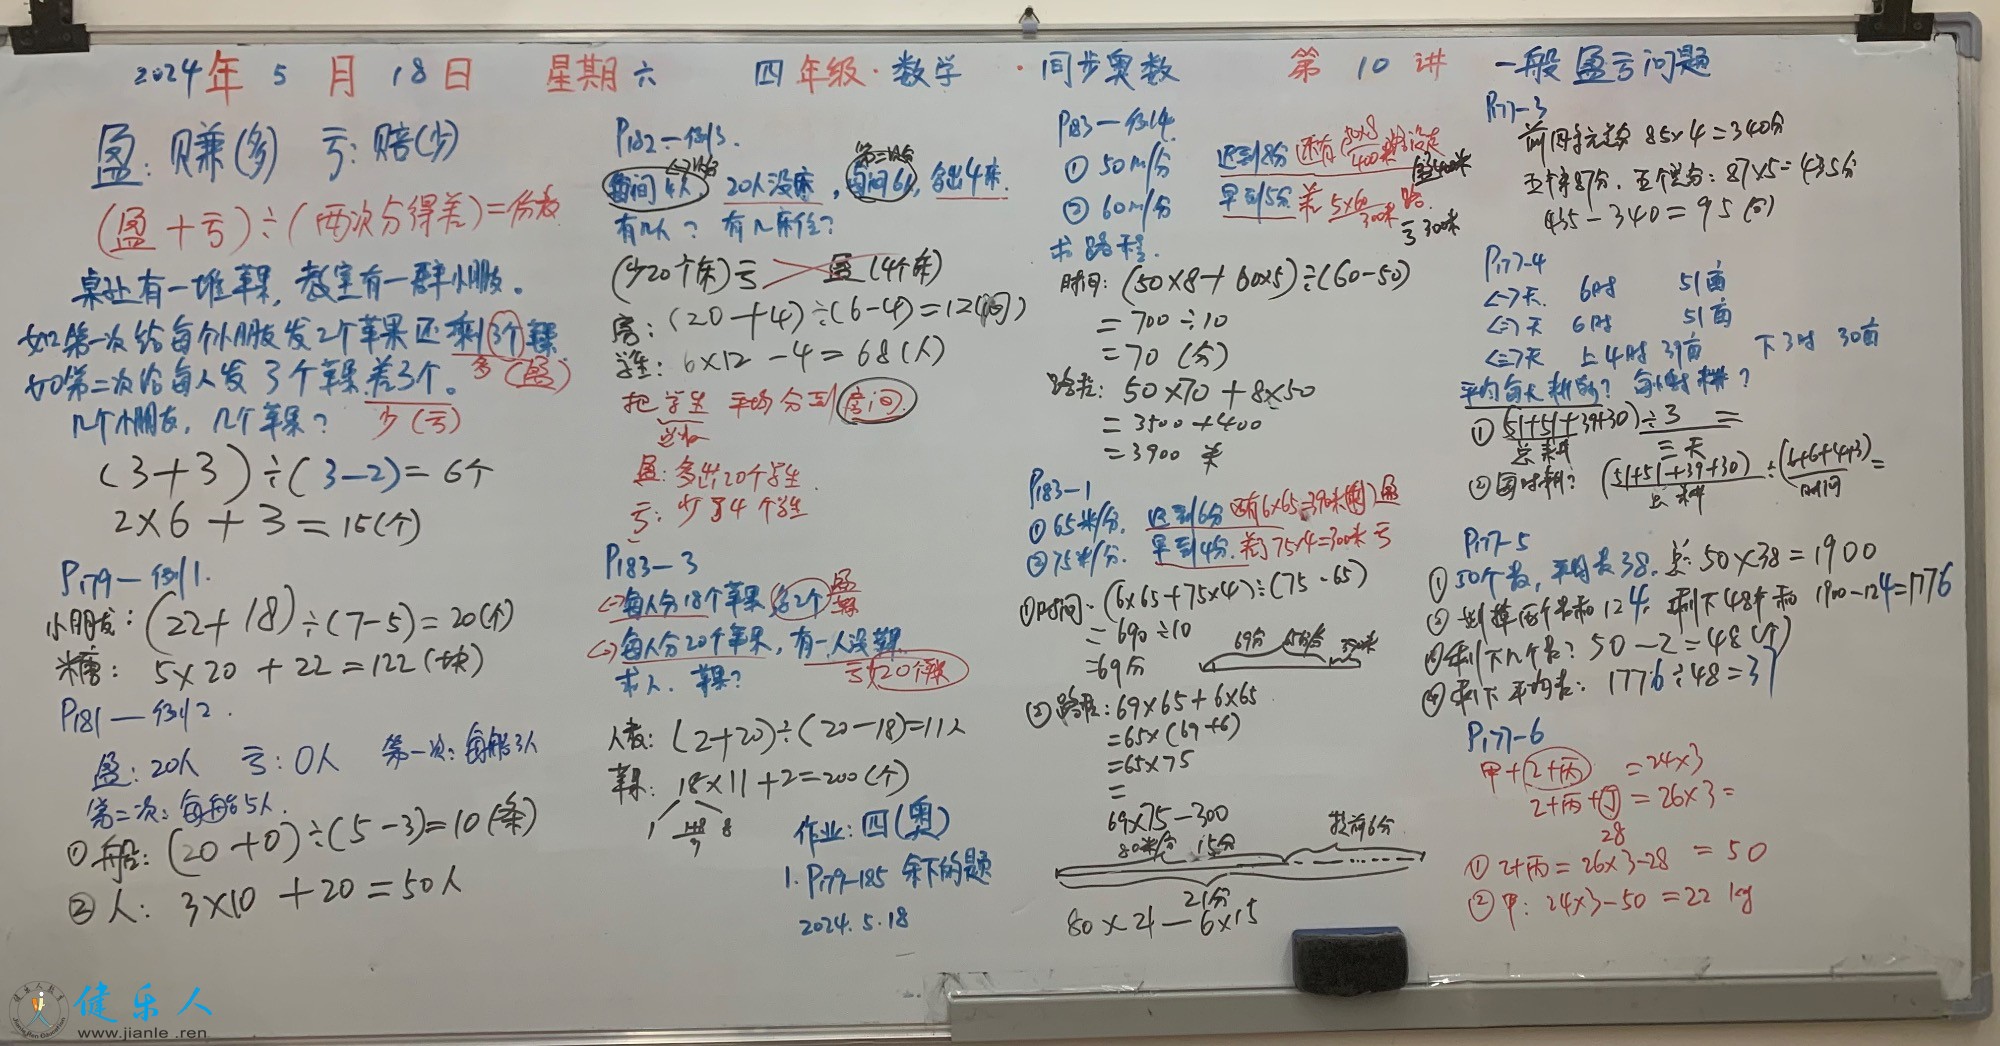 2024年5月18日 星期六 四年级·数学·同步奥数 第10讲 一般盈亏问题
盈:赚(多) 亏:赔(少)
(盈+亏)÷(两次分得差)=份数
桌上有一堆苹果,教室有一群小朋友。
如第一次给每个小朋友发2个苹果还剩3个苹果
多(盈)
如第二次给每人发3个苹果差3个。
少(亏)
几个小朋友,几个苹果?
(3+3)÷(3-2)=6个
2×6+3=15(个)
P179—例1.
小朋友:(22+18)÷(7-5)=20(个)
糖:5×20+22=122(块)
P181—例2.
盈:20人 亏:0人 第一次:每船3人
第二次:每船5人.
①船:(20+0)÷(5-3)=10(条)
②人:3×10+20=50人
P182—例3.
每间4人 20人没床,每间6人,多出4床.
有几人?有几房住?
(少20个床)亏 盈(4个床)
房:(20+4)÷(6-4)=12(间)
学生:6×12-4=68(人)
把学生平均分到房间.
盈:多出20个学生.
亏:少了4个学生
P183—3
<一>每人分18个苹果,多2个
<二>每人分20个苹果,有一人没苹果.
亏20个苹果
求人.苹果?
人数:(2+20)÷(20-18)=11人
苹果:18×11+2=200(个)
1 8
作业:四(奥)
1.P179-185 余下的题
2024.5.18
P183—例4.
①50m/分 迟到8分 还有 50×8 400米
②60m/分 早到5分 差 5×60 300米 路.
亏300米
求路程.
时间:(50×8+60×5)÷(60-50)
=700÷10
=70(分)
路程:50×70+8×50
=3500+400
=3900米
P183-1
①65米/分.迟到6分 还有6×65=390米 盈
②75米/分.早到4分.差75×4=300米 亏
①时间:(6×65+75×4)÷(75-65)
=690÷10
=69分
69分
②路程:69×65+6×65
=65×(69+6)
=65×75
=
69×75-300
80米/分 15分 提前6分
21分
80×21-6×15
P177-3
85×4=340分
五个总分:87×5=435分
435-340=95(分)
P177-4
<一>天 6时 51亩
<二>天 6时 51亩
<三>天 上4时 39亩 下3时 30亩
平均每天耕?每小时耕?
①(51+51+39+30)÷3=
总耕 三天
②每时耕?(51+51+39+30)÷(6+6+4+3)=
总耕 时间
P177-5
①50个数,平均数38.总:50×38=1900
②划掉两个数和124.剩下48个和1900-124=1776
③剩下几个数?50-2=48(个)
④剩下平均数:1776÷48=37
P177-6
甲+乙+丙=24×3
乙+丙+丁=26×3=
28
①乙+丙=26×3-28=50
②甲:24×3-50=22kg
健乐人
www.jianle.ren